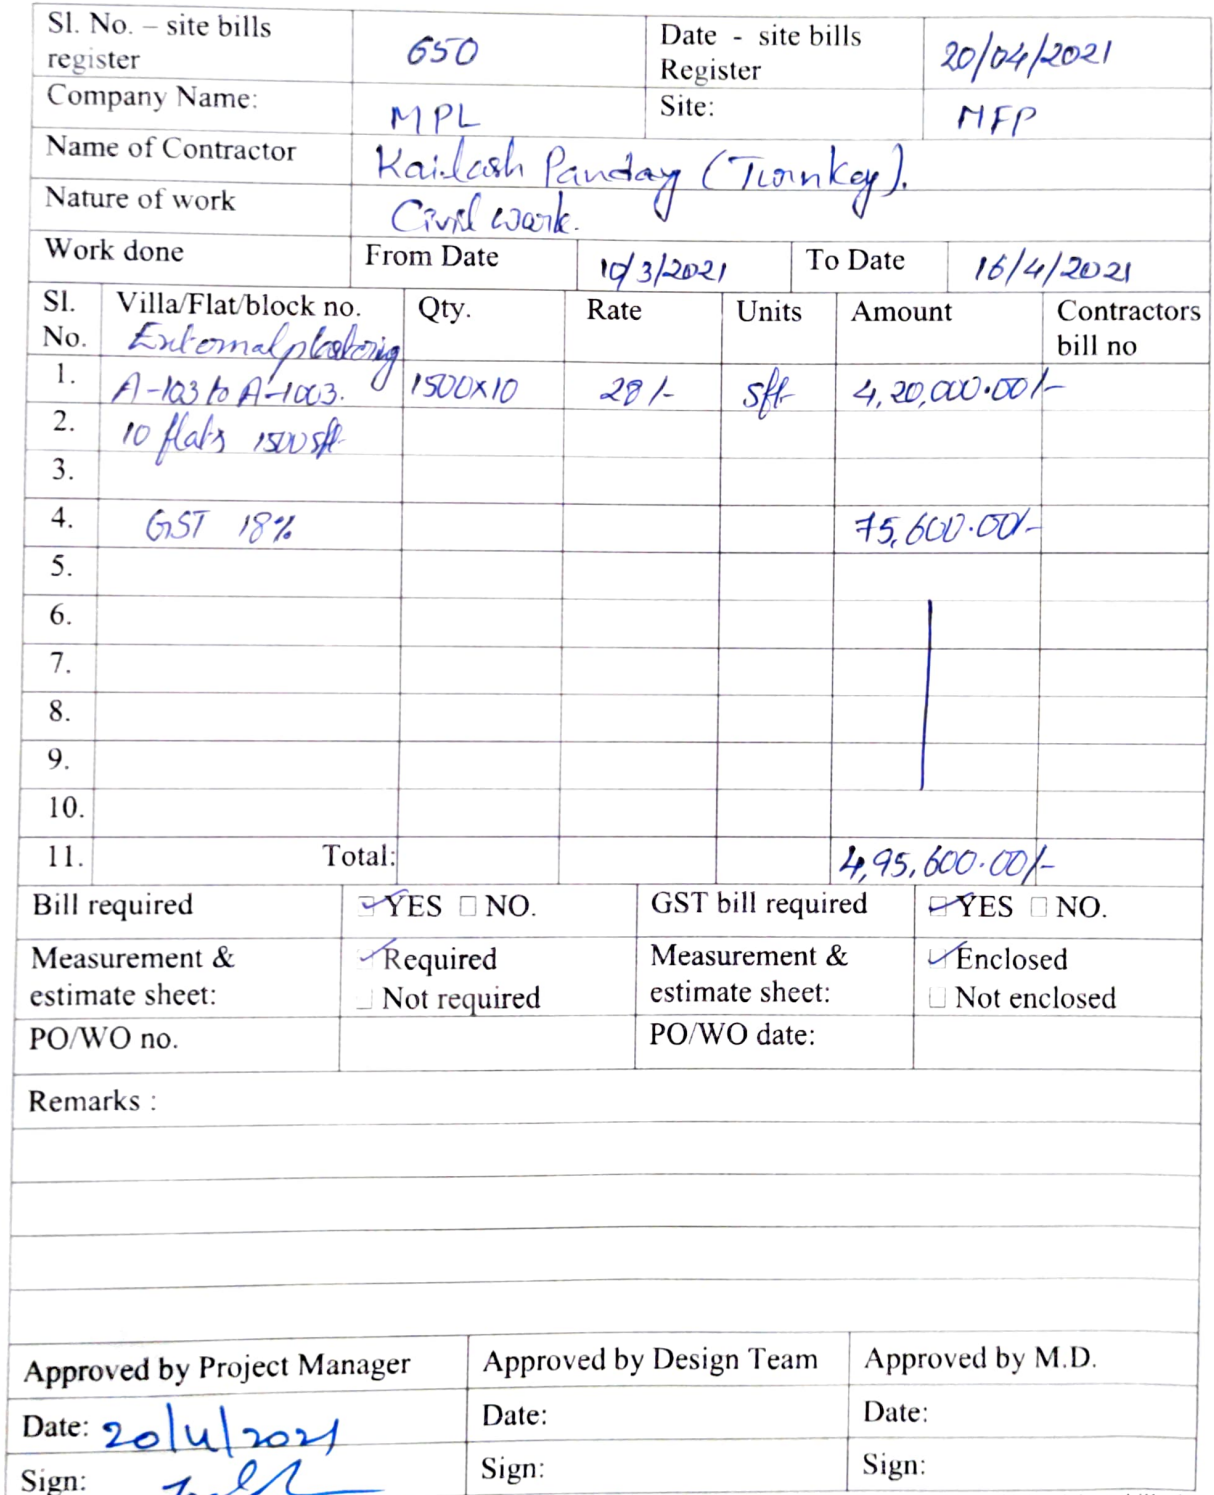 Sl. No. – site bills register 650 Date - site bills Register 20/04/2021
Company Name: MPL Site: MFP
Name of Contractor Kailash Panday (Turnkey).
Nature of work Civil work.
Work done From Date 10/3/2021 To Date 16/4/2021
Sl. No. Villa/Flat/block no. Qty. Rate Units Amount Contractors bill no
External plastering
1. A-103 to A-1003. 1500x10 28/- sft 4,20,000.00/-
2. 10 flats 1500 sft
3.
4. GST 18% 75,600.00/-
5.
6.
7.
8.
9.
10.
11. Total: 4,95,600.00/-
Bill required YES NO. GST bill required YES NO.
Measurement & estimate sheet: Required Not required Measurement & estimate sheet: Enclosed Not enclosed
PO/WO no. PO/WO date:
Remarks :
Approved by Project Manager Approved by Design Team Approved by M.D.
Date: 20/4/2021 Date: Date:
Sign: Sign: Sign: